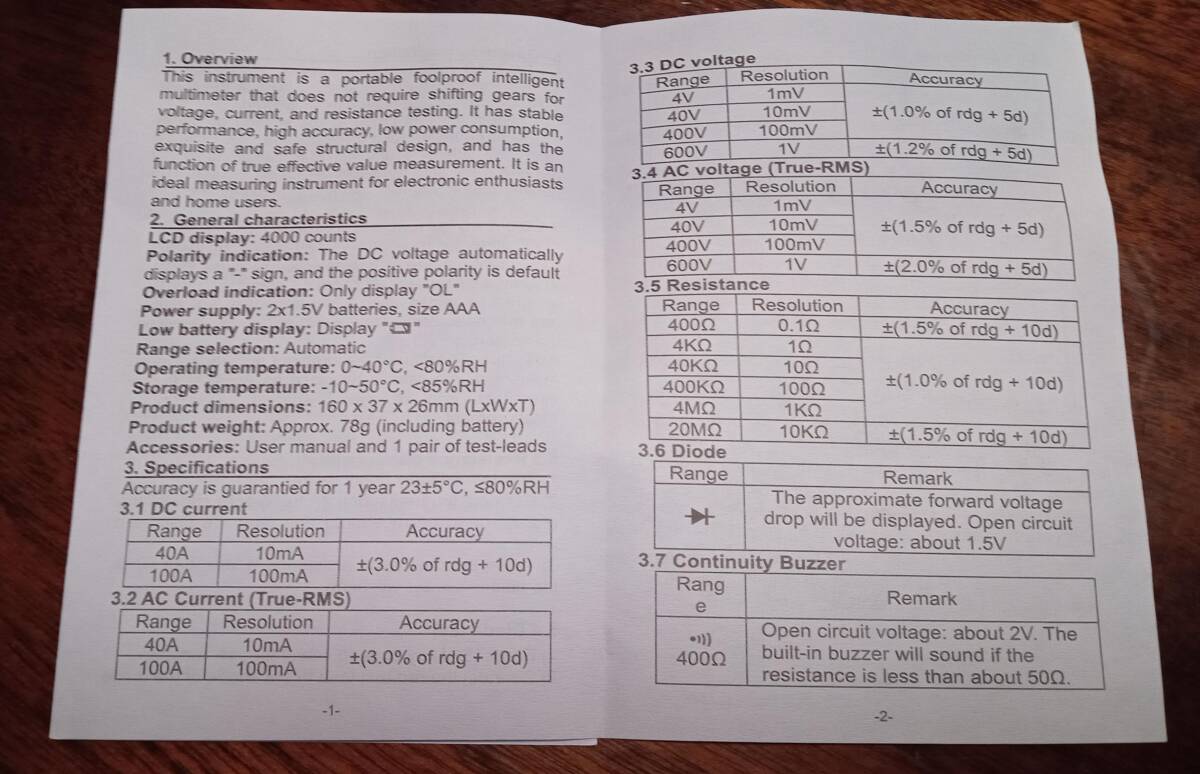 1. Overview
This instrument is a portable foolproof intelligent
multimeter that does not require shifting gears for
voltage, current, and resistance testing. It has stable
performance, high accuracy, low power consumption,
exquisite and safe structural design, and has the
function of true effective value measurement. It is an
ideal measuring instrument for electronic enthusiasts
and home users.
2. General characteristics
LCD display: 4000 counts
Polarity indication: The DC voltage automatically
displays a "-" sign, and the positive polarity is default
Overload indication: Only display "OL"
Power supply: 2x1.5V batteries, size AAA
Low battery display: Display " "
Range selection: Automatic
Operating temperature: 0~40°C, <80%RH
Storage temperature: -10~50°C, <85%RH
Product dimensions: 160 x 37 x 26mm (LxWxT)
Product weight: Approx. 78g (including battery)
Accessories: User manual and 1 pair of test-leads
3. Specifications
Accuracy is guarantied for 1 year 23±5°C, ≤80%RH
3.1 DC current
Range Resolution Accuracy
40A 10mA
±(3.0% of rdg + 10d)
100A 100mA
3.2 AC Current (True-RMS)
Range Resolution Accuracy
40A 10mA
±(3.0% of rdg + 10d)
100A 100mA
-1-
3.3 DC voltage
Range Resolution Accuracy
4V 1mV
40V 10mV ±(1.0% of rdg + 5d)
400V 100mV
600V 1V ±(1.2% of rdg + 5d)
3.4 AC voltage (True-RMS)
Range Resolution Accuracy
4V 1mV
40V 10mV ±(1.5% of rdg + 5d)
400V 100mV
600V 1V ±(2.0% of rdg + 5d)
3.5 Resistance
Range Resolution Accuracy
400Ω 0.1Ω ±(1.5% of rdg + 10d)
4KΩ 1Ω
40KΩ 10Ω
±(1.0% of rdg + 10d)
400KΩ 100Ω
4MΩ 1KΩ
20MΩ 10KΩ ±(1.5% of rdg + 10d)
3.6 Diode
Range Remark
The approximate forward voltage
drop will be displayed. Open circuit
voltage: about 1.5V
3.7 Continuity Buzzer
Rang
e
Remark
400Ω
Open circuit voltage: about 2V. The
built-in buzzer will sound if the
resistance is less than about 50Ω.
-2-